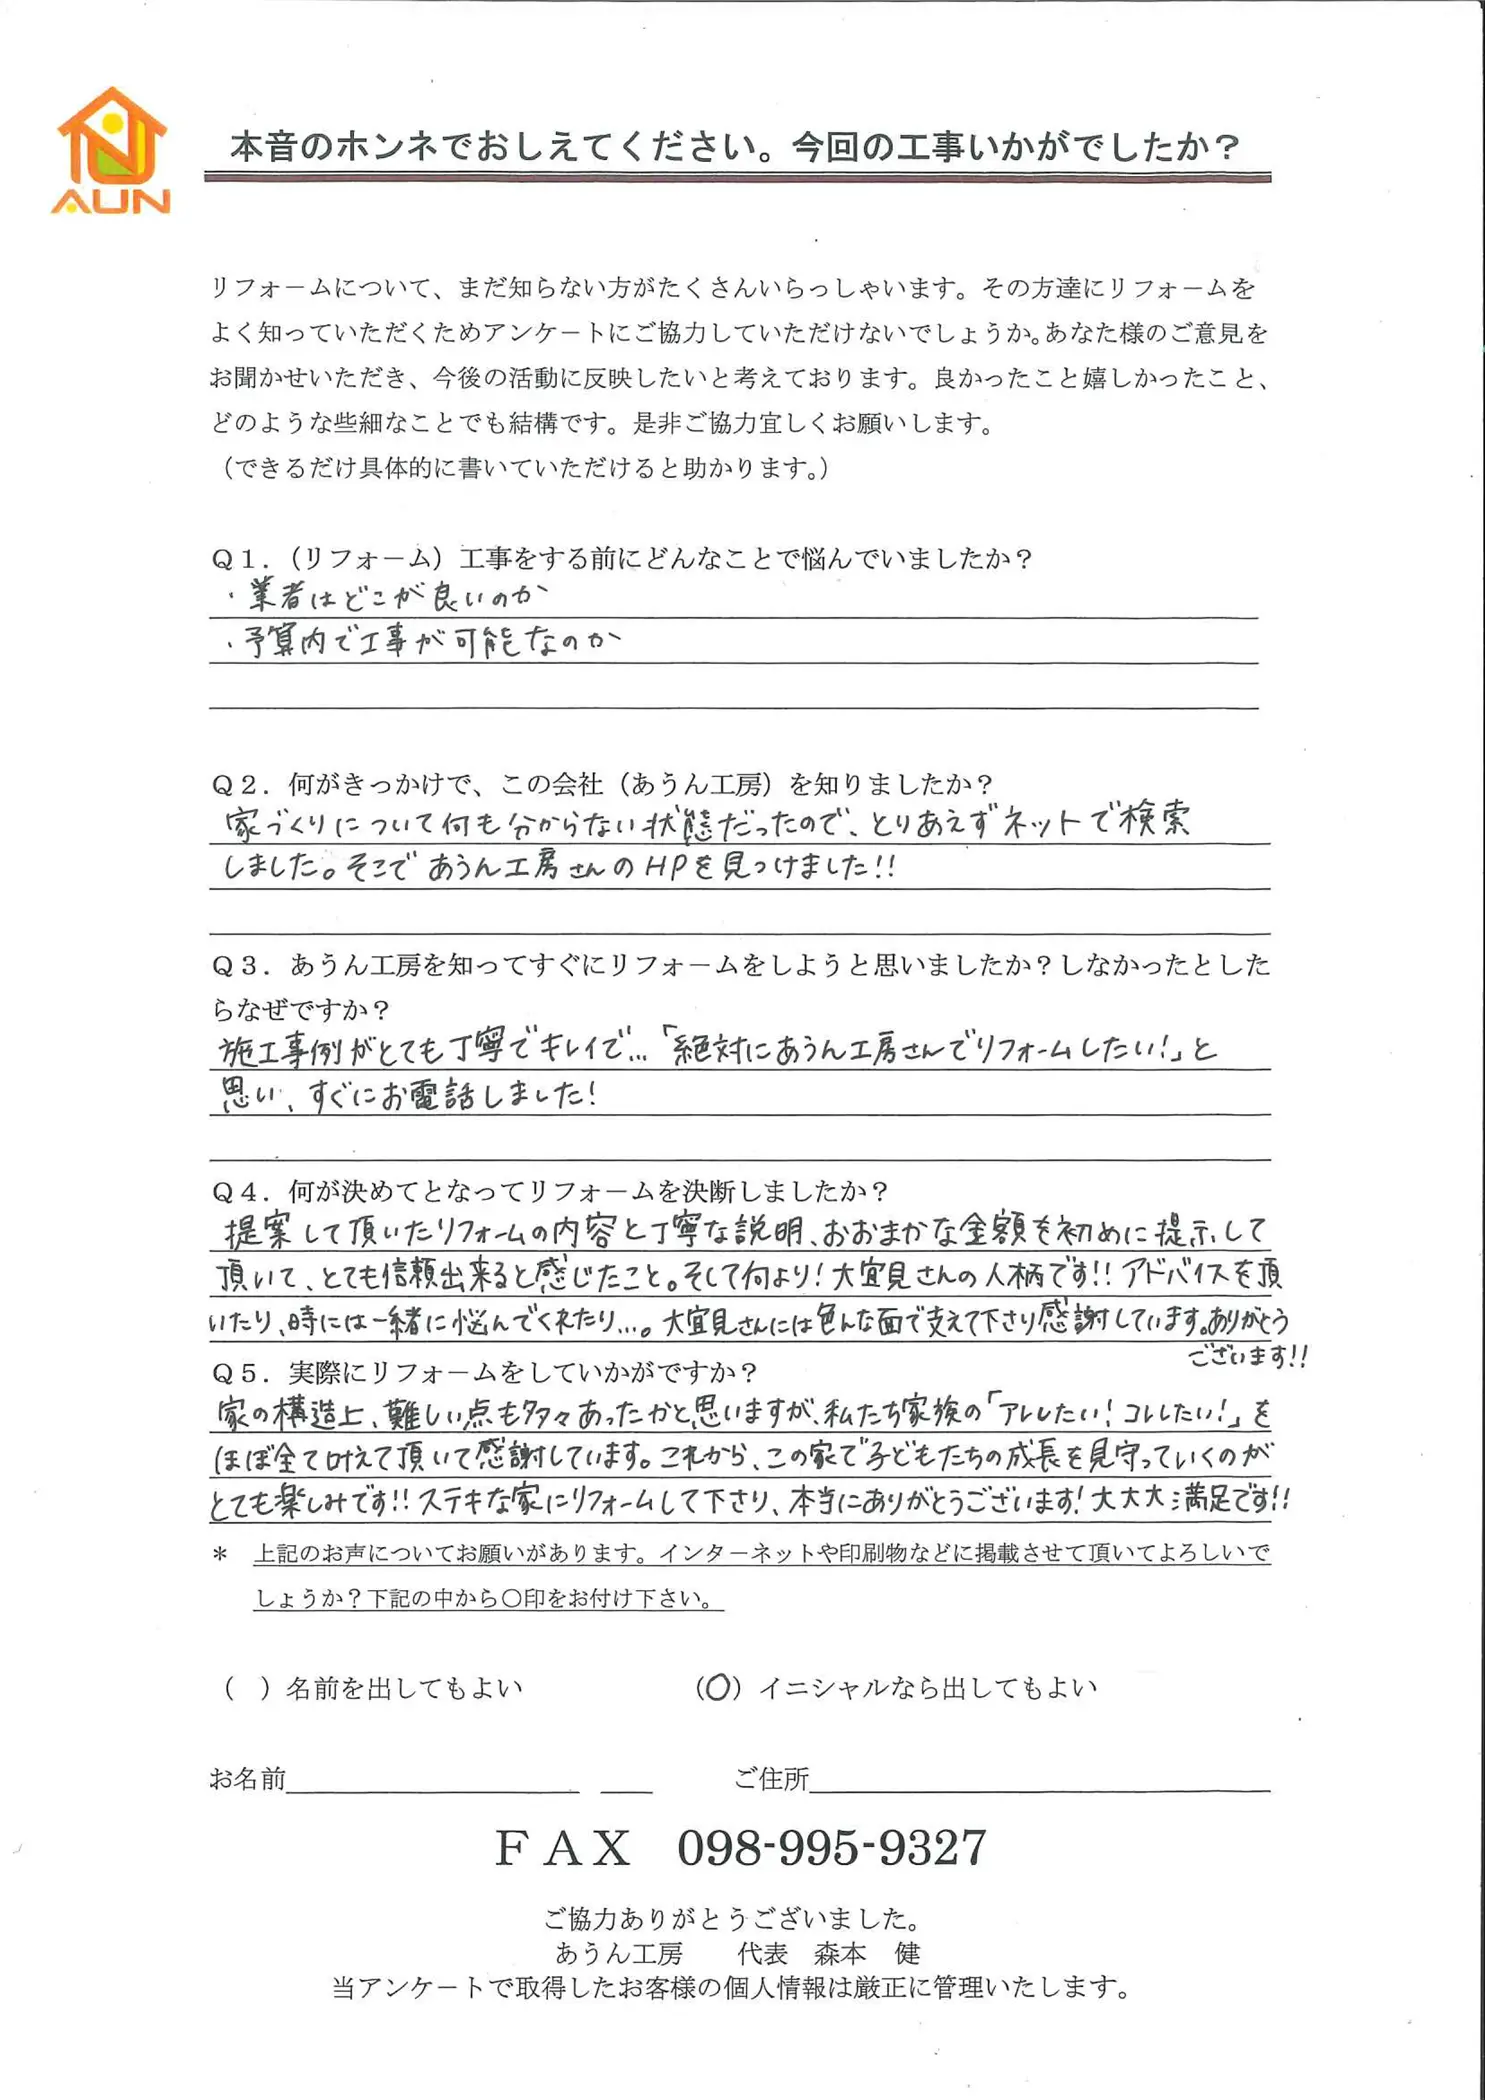 AUN
本音のホンネでおしえてください。今回の工事いかがでしたか？
リフォームについて、まだ知らない方がたくさんいらっしゃいます。その方達にリフォームを
よく知っていただくためアンケートにご協力していただけないでしょうか。あなた様のご意見を
お聞かせいただき、今後の活動に反映したいと考えております。良かったこと嬉しかったこと、
どのような些細なことでも結構です。是非ご協力宜しくお願いします。
（できるだけ具体的に書いていただけると助かります。）
Ｑ１．（リフォーム）工事をする前にどんなことで悩んでいましたか？
・業者はどこが良いのか
・予算内で工事が可能なのか
Ｑ２．何がきっかけで、この会社（あうん工房）を知りましたか？
家づくりについて何も分からない状態だったので、とりあえずネットで検索
しました。そこであうん工房さんのHPを見つけました!!
Ｑ３．あうん工房を知ってすぐにリフォームをしようと思いましたか？しなかったとした
らなぜですか？
施工事例がとても丁寧でキレイで…「絶対にあうん工房さんでリフォームしたい!」と
思い、すぐにお電話しました!
Ｑ４．何が決めてとなってリフォームを決断しましたか？
提案して頂いたリフォームの内容と丁寧な説明、おおまかな金額を初めに提示して
頂いて、とても信頼出来ると感じたこと。そして何より!大宜見さんの人柄です!!アドバイスを頂
いたり、時には一緒に悩んでくれたり…。大宜見さんには色んな面で支えて下さり感謝しています。ありがとう
ございます!!
Ｑ５．実際にリフォームをしていかがですか？
家の構造上、難しい点も多々あったかと思いますが、私たち家族の「アレしたい!コレしたい!」を
ほぼ全て叶えて頂いて感謝しています。これから、この家で子どもたちの成長を見守っていくのが
とても楽しみです!!ステキな家にリフォームして下さり、本当にありがとうございます!大大大満足です!!
＊　上記のお声についてお願いがあります。インターネットや印刷物などに掲載させて頂いてよろしいで
しょうか？下記の中から〇印をお付け下さい。
（　）名前を出してもよい　（〇）イニシャルなら出してもよい
お名前　ご住所
ＦＡＸ　098-995-9327
ご協力ありがとうございました。
あうん工房　代表　森本　健
当アンケートで取得したお客様の個人情報は厳正に管理いたします。